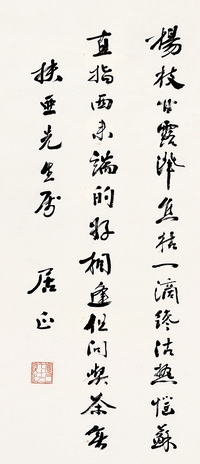 楊枝甘露濟焦枯一滴沾熱惱蘇
直指西來端的好相逢但問喫茶無
扶亞先生屬 居正